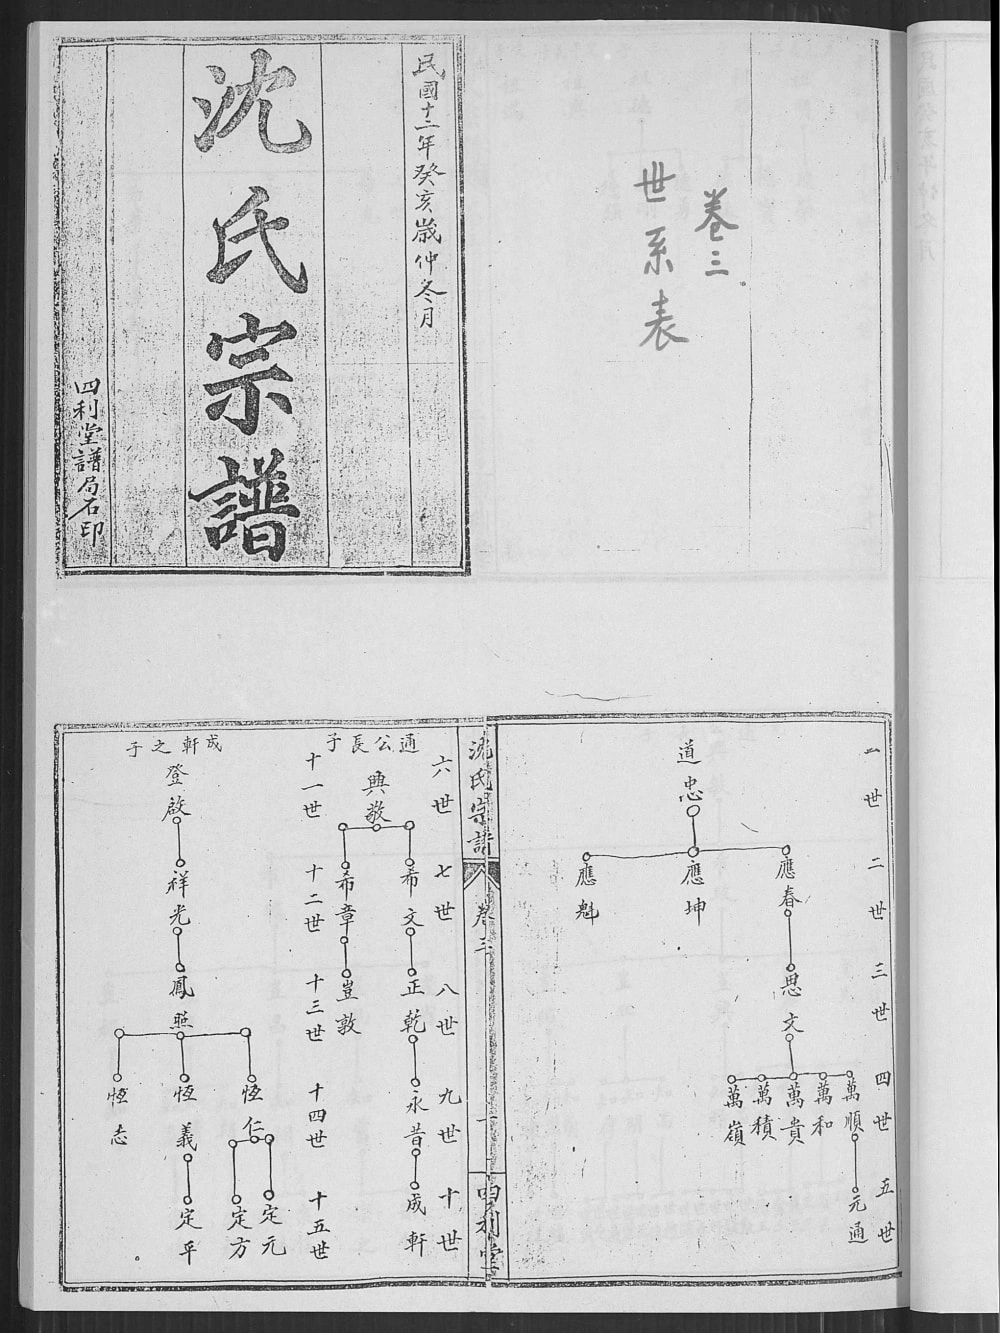 卷三
世系表
民國十二年癸亥歲仲冬月
沈氏宗譜
四利堂譜局石印
一世
二世
三世
四世
五世
道忠
應春
應坤
應魁
思文
萬順
萬和
萬貴
萬積
萬嶺
元通
沈氏宗譜
卷三
一
四利堂
六世
七世
八世
九世
十世
通公長子
興敬
希文
希章
正乾
豈敦
永昔
成軒
十一世
十二世
十三世
十四世
十五世
成軒之子
登啟
祥光
鳳熙
恆仁
恆義
恆志
定元
定方
定平